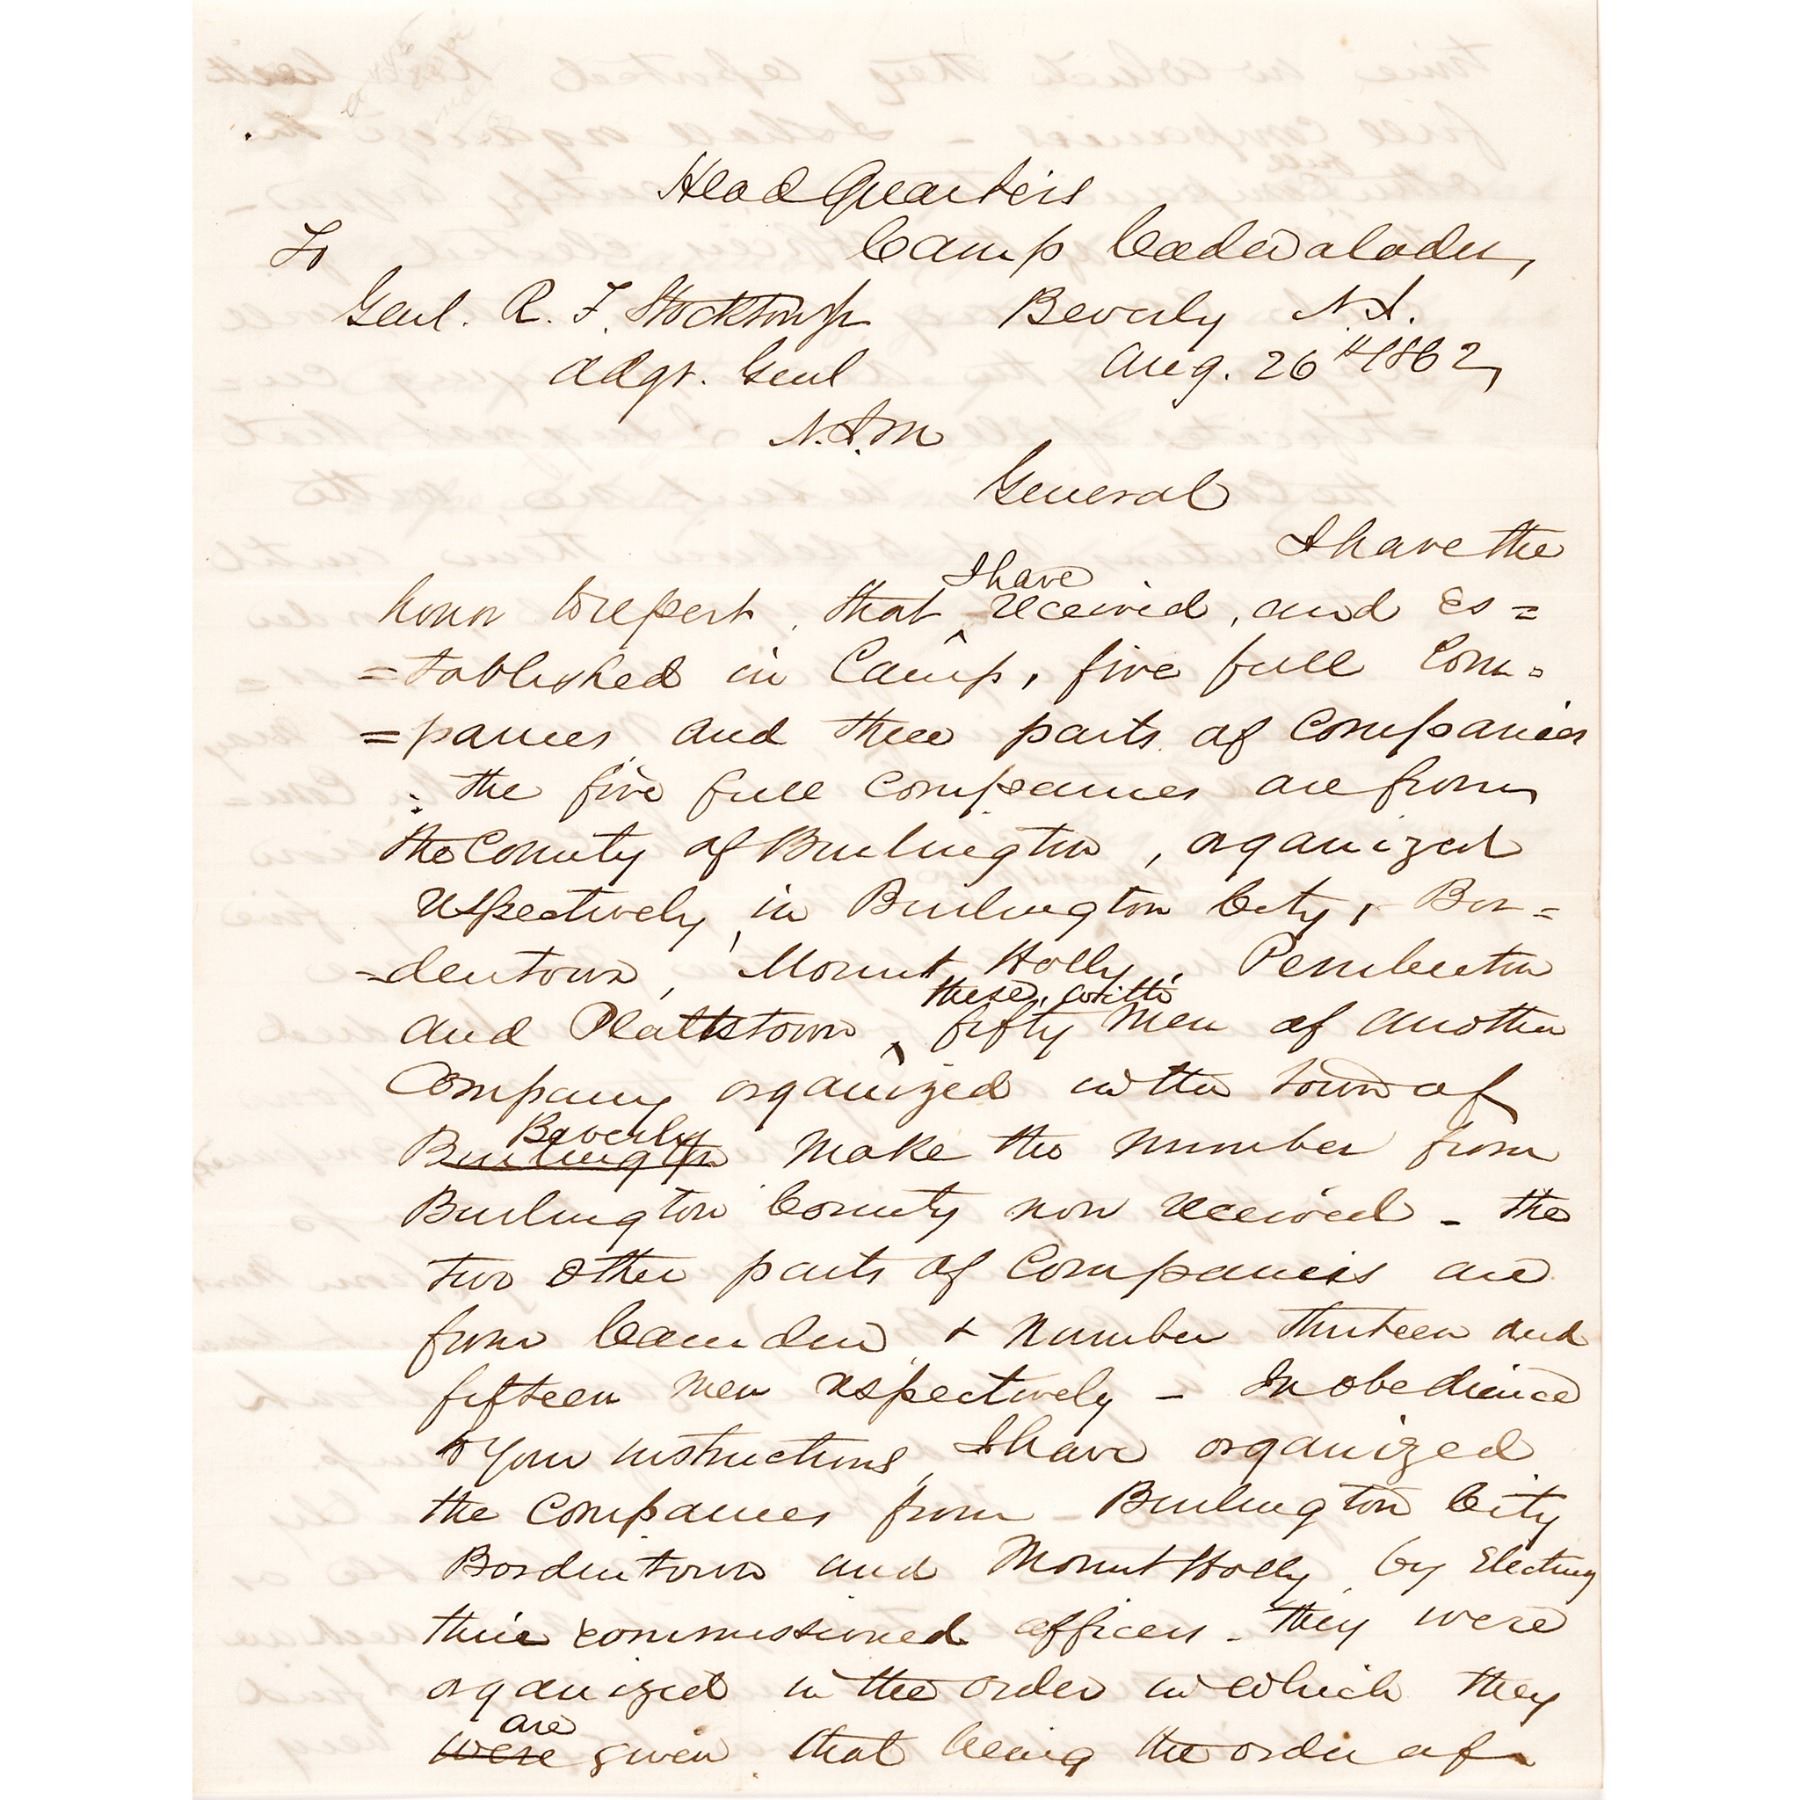 Head Quarters
To Camp Cadwalader,
Genl. R. F. Stockton Jr Beverly N.J.
Adgt. Genl Aug. 26th 1862,
N.J.M
General
I have the
honor to report, that I have received, and es=
=tablished in Camp, five full Com=
=panies, and three parts of Companies
: the five full Companies are from
the County of Burlington, organized
respectively, in Burlington City, Bor=
=dentown, Mount Holly, Pemberton
and Plattstown, these, with fifty men of another
Company organized in the town of
Burlington Beverly make the number from
Burlington County now received - the
two other parts of Companies are
from Camden, & number thirteen and
fifteen men respectively - In obedience
to your instructions, I have organized
the Companies from - Burlington City
Bordentown and Mount Holly, by Electing
their commissioned officers - they were
organized in the order in which they
were are given, that being the order of